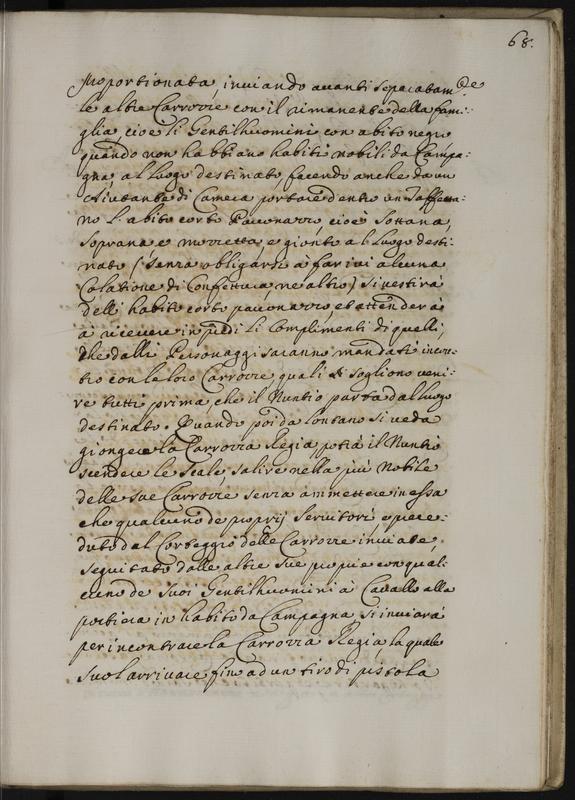 68.
proportionata, inviando avanti separatam.te
le altre Carrozze con il rimanente della fami:
glia, cioè li Gentilhuomini con abito negro
quando non habbiano habiti nobili da Campa:
gna, al luogo destinato, facendo anche da un
Aiutante di Camera portare dentro un Taffetta:
no l'abito corto Pavonazzo, cioè sottana,
soprana e mozzetta, e gionto al luogo desti:
nato (senza obligarsi à far ivi alcuna
Colatione di Confettura, ne altro) si vestirà
delli habiti corto pavonazzo, et attenderà
à ricevere in piedi li Complimenti di quelli,
che dalli Personaggi saranno mandati incon:
tro con le loro Carrozze, quali sogliono veni:
re tutti prima, che il Nuntio parta dal luogo
destinato. Quando poi da lontano si veda
giongere la Carrozza Regia, potrà il Nuntio
scendere le Scale, salire nella più nobile
delle sue Carrozze senza ammettere in essa
che qualcuno de proprij servitori e prece:
duto dal Corteggio delle Carrozze inviate,
seguitato dalle altre sue proprie con qual:
cuno de suoi Gentilhuomini à Cavallo alla
portiera in habito da Campagna si inviarà
per incontrare la Carrozza Regia, la quale
suol arrivare fino ad un tiro di pistola